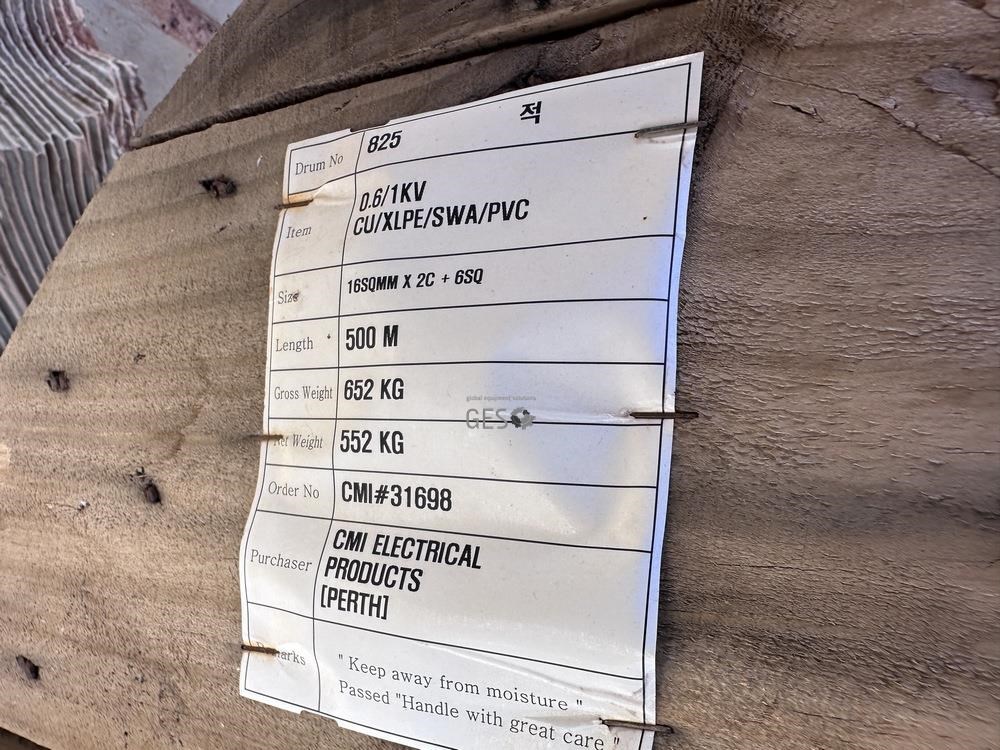 Drum No 825 적
Item 0.6/1KV
CU/XLPE/SWA/PVC
Size 16SQMM X 2C + 6SQ
Length 500 M
Gross Weight 652 KG
Net Weight 552 KG
Order No CMI#31698
Purchaser CMI ELECTRICAL
PRODUCTS
[PERTH]
Remarks " Keep away from moisture "
Passed "Handle with great care "
global equipment solutions
GES